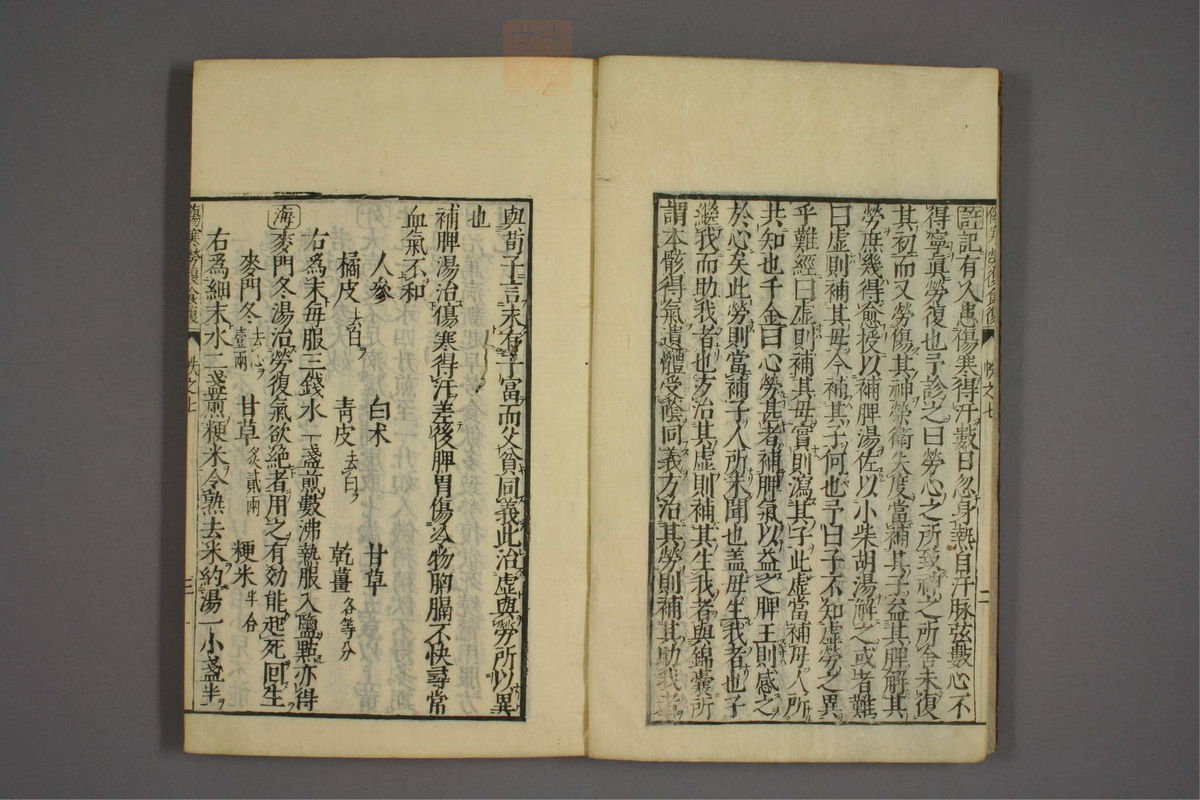 許記有人患傷寒得汗數日忽身熱自汗脉弦數心不
得寧眞勞復也予診之曰勞心之所致神之所舍未復
其初而又勞傷其神榮衛失度當補其子益其脾解其
勞庶幾得愈授以補脾湯佐以小柴胡湯解之或者難
曰虛則補其母今補其子何也予曰子不知虛勞之異
乎難經曰虛則補其母實則瀉其子此虛當補母人所
共知也千金曰心勞甚者補脾氣以益之脾王則感之
於心矣此勞則當補子人所未聞也盖母生我者也子
繼我而助我者也方治其虛則補其生我者與錦囊所
謂本骸得氣遺體受蔭同義方治其勞則補其助我者
傷寒勞復食復
帙之七
二
與荀子言未有子富而父貧同義此治虛與勞所以異
也
補脾湯治傷寒得汗差後脾胃傷冷物胸膈不快尋常
血氣不和
人參 白术 甘草
橘皮去白 靑皮去白 乾薑各等分
右爲末每服三錢水一盞煎數沸熱服入鹽點亦得
海麥門冬湯治勞復氣欲絕者用之有効能起死回生
麥門冬去心壹兩 甘草炙貳兩 粳米半合
右爲細末水二盞煎粳米令熟去米約湯一小盞半
傷寒勞復食復
帙之七
三